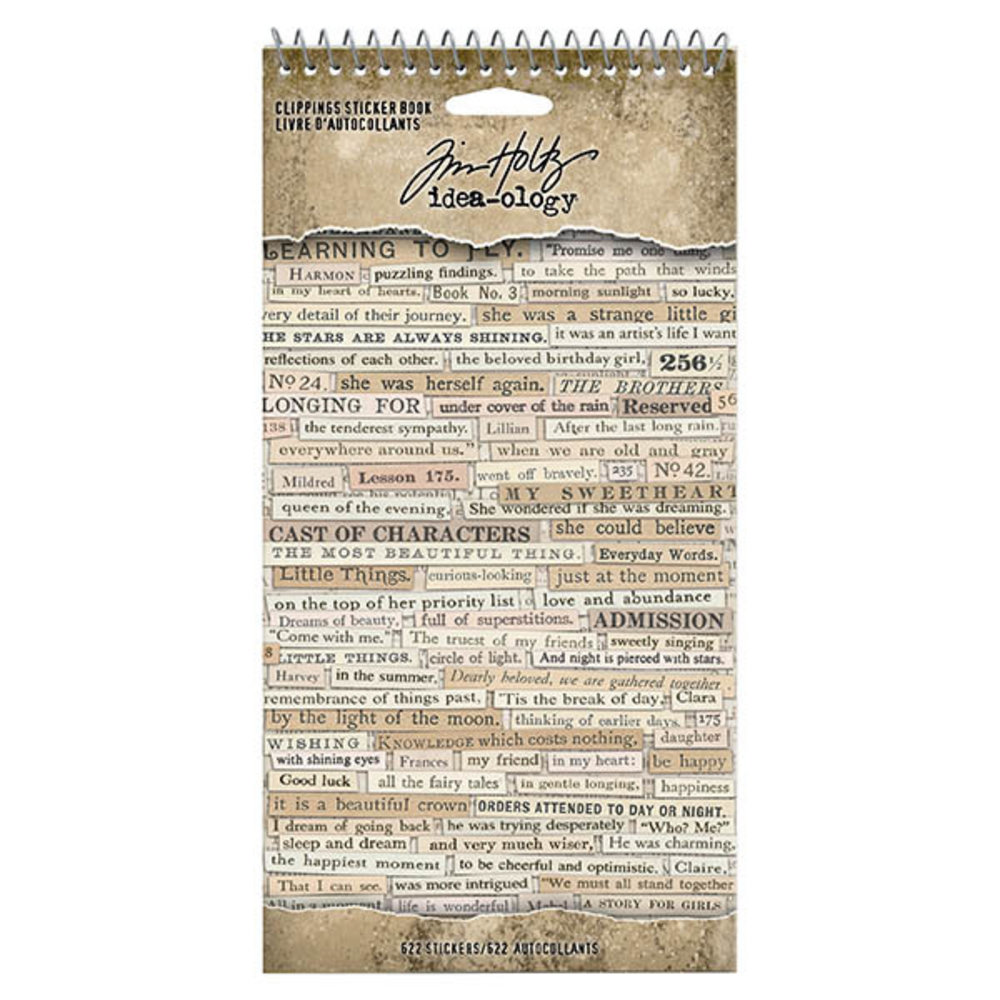 CLIPPINGS STICKER BOOK
LIVRE D'AUTOCOLLANTS
Tim Holtz
idea-ology
LEARNING TO FLY. "Promise me one thing,
HARMON puzzling findings. to take the path that winds
in my heart of hearts. Book No. 3 morning sunlight so lucky.
very detail of their journey. she was a strange little gi
HE STARS ARE ALWAYS SHINING. it was an artist's life I want
reflections of each other. the beloved birthday girl, 256½
No 24. she was herself again. THE BROTHERS
LONGING FOR under cover of the rain Reserved 56
138 the tenderest sympathy. Lillian After the last long rain.
everywhere around us." when we are old and gray
Mildred Lesson 175. went off bravely. 235 No 42.
MY SWEETHEART
queen of the evening. She wondered if she was dreaming.
CAST OF CHARACTERS she could believe w
THE MOST BEAUTIFUL THING. Everyday Words.
Little Things. curious-looking just at the moment
on the top of her priority list love and abundance
Dreams of beauty. full of superstitions. ADMISSION
"Come with me." The truest of my friends sweetly singing
8 LITTLE THINGS. circle of light. And night is pierced with stars.
Harvey in the summer. Dearly beloved, we are gathered together
remembrance of things past, 'Tis the break of day. Clara
by the light of the moon. thinking of earlier days. 175
WISHING KNOWLEDGE which costs nothing, daughter
with shining eyes Frances my friend in my heart: be happy
Good luck all the fairy tales in gentle longing, happiness
it is a beautiful crown ORDERS ATTENDED TO DAY OR NIGHT.
I dream of going back he was trying desperately "Who? Me?"
sleep and dream and very much wiser, He was charming.
the happiest moment to be cheerful and optimistic. Claire,
That I can see. was more intrigued "We must all stand together
All in a moment life is wonderful Mabel A STORY FOR GIRLS
622 STICKERS/622 AUTOCOLLANTS